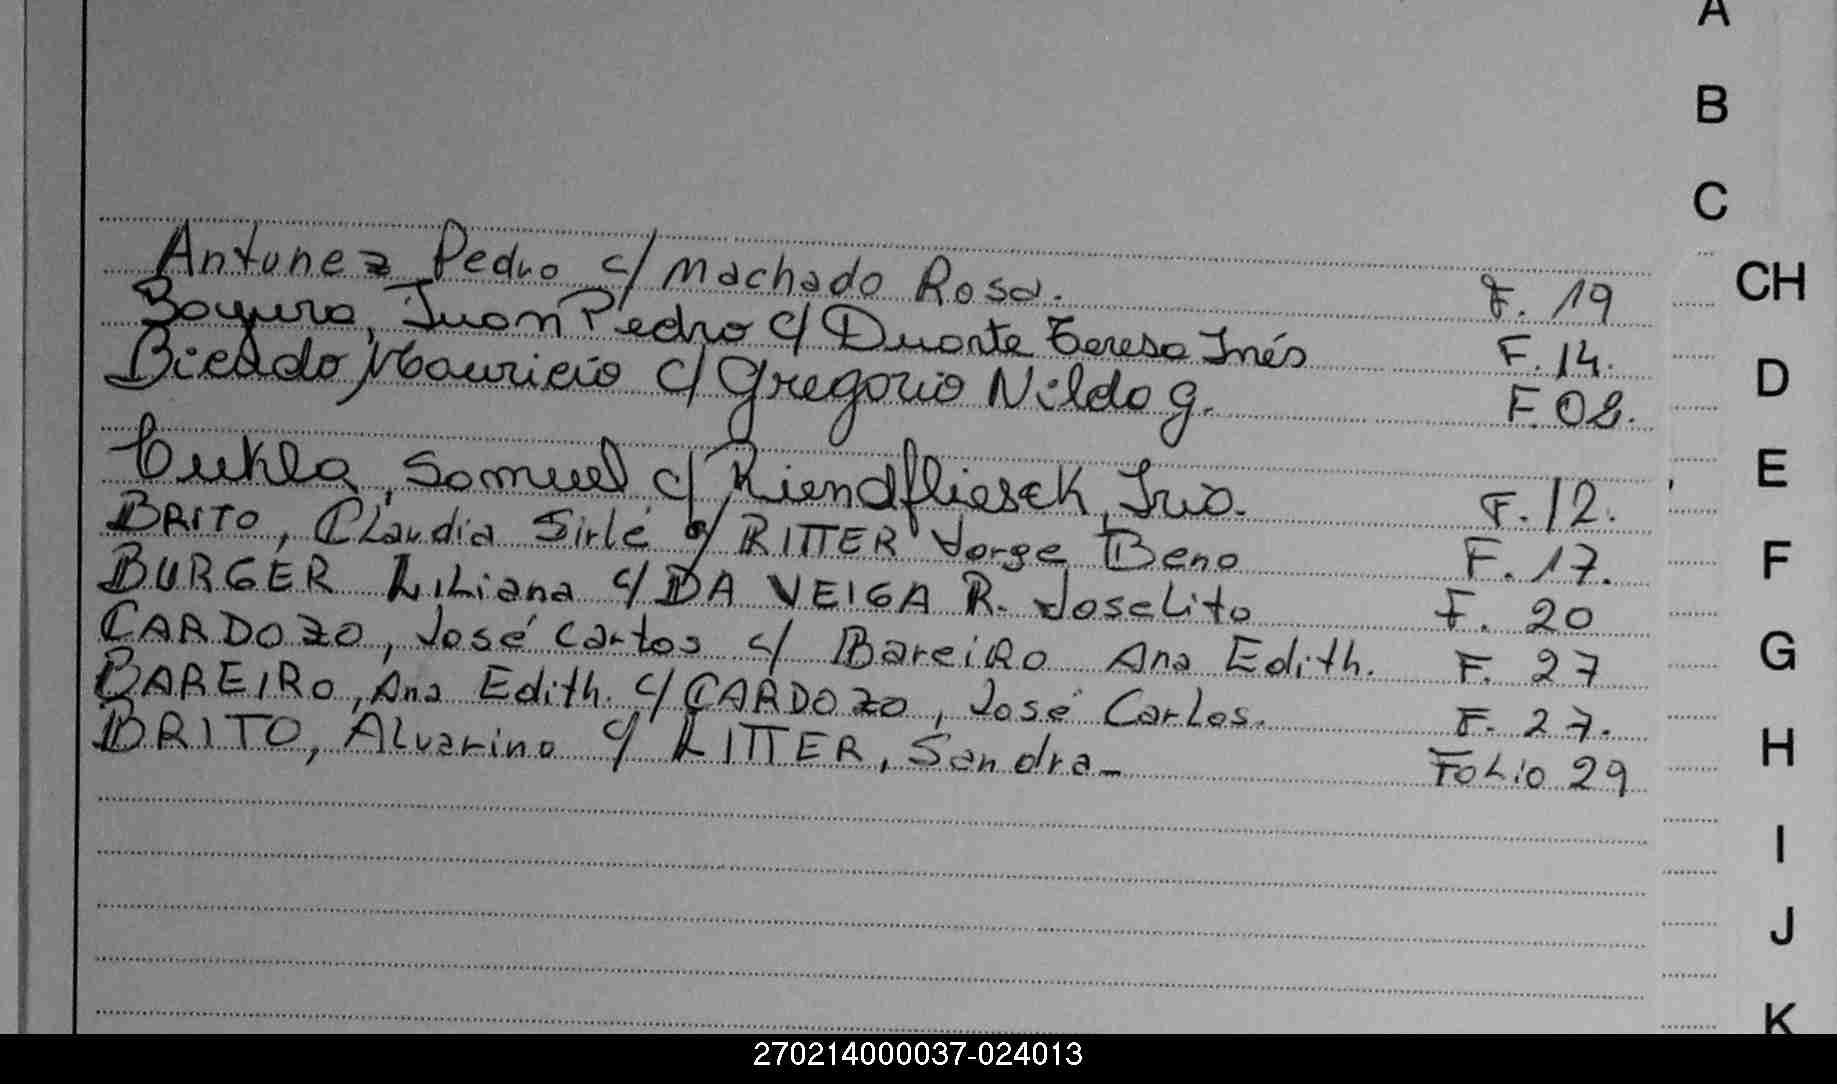 A
B
C
Antunez Pedro c/ Machado Rosa. F. 19
CH
Juan Pedro c/ Duarte Teresa Inés F. 14.
D
Mauricio c/ Gregorio Nildo G. F. 08.
E
Samuel c/ F. 12.
BRITO, Claudia Sirlé c/ RITTER Jorge Beno F. 17.
F
BURGER Liliana c/ DA VEIGA R. Joselito F. 20
CARDOZO, José Carlos c/ Bareiro Ana Edith. F. 27
G
BAREIRO, Ana Edith. c/ CARDOZO, José Carlos. F. 27.
BRITO, Alvarino c/ RITTER, Sandra- Folio 29
H
I
J
K
270214000037-024013